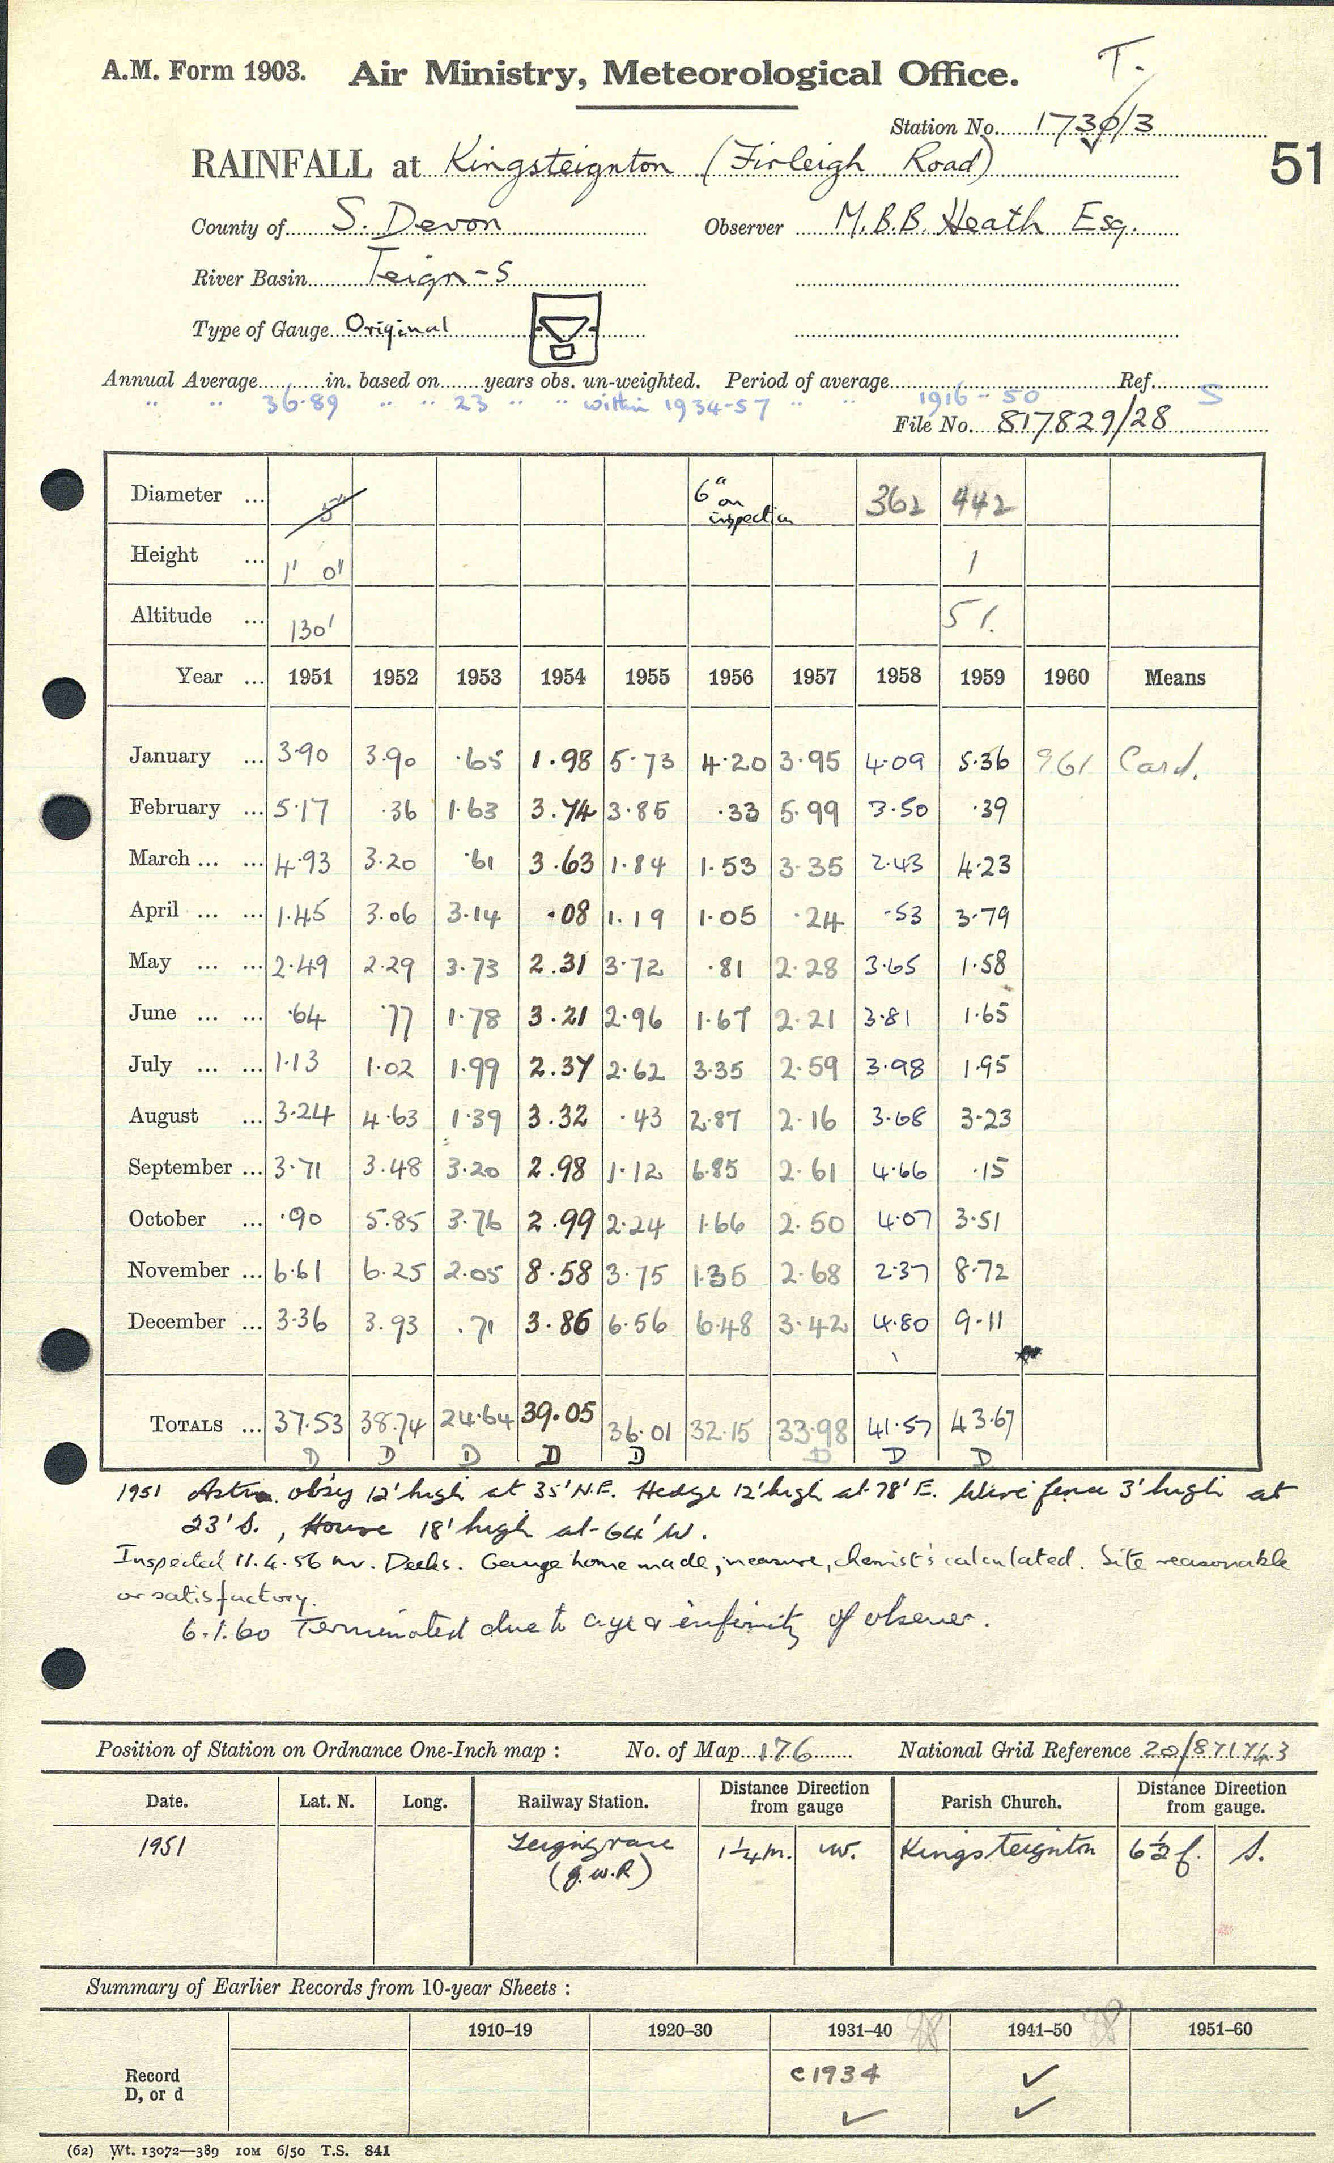 T.
A.M. Form 1903. Air Ministry, Meteorological Office.
Station No. 1730/3
51
RAINFALL at Kingsteignton (Firleigh Road)
County of S. Devon Observer M.B.B. Heath Esq.
River Basin Teign-S
Type of Gauge Original
Annual Average in. based on years obs. un-weighted. Period of average Ref.
" " 36.89 " " 23 " " within 1934-57 " " 1916-50 S
File No. 817829/28
Diameter ... 5" 6" on inspection 362 442
Height ... 1' 0" 1
Altitude ... 130' 51.
Year ... 1951 1952 1953 1954 1955 1956 1957 1958 1959 1960 Means
January ... 3.90 3.90 .65 1.98 5.73 4.20 3.95 4.09 5.36 961 Card.
February ... 5.17 .36 1.63 3.74 3.85 .33 5.99 3.50 .39
March ... ... 4.93 3.20 .61 3.63 1.84 1.53 3.35 2.43 4.23
April ... ... 1.45 3.06 3.14 .08 1.19 1.05 .24 .53 3.79
May ... ... 2.49 2.29 3.73 2.31 3.72 .81 2.28 3.65 1.58
June ... ... .64 .77 1.78 3.21 2.96 1.67 2.21 3.81 1.65
July ... ... 1.13 1.02 1.99 2.37 2.62 3.35 2.59 3.98 1.95
August ... 3.24 4.63 1.39 3.32 .43 2.87 2.16 3.68 3.23
September ... 3.71 3.48 3.20 2.98 1.12 6.85 2.61 4.66 .15
October ... .90 5.85 3.76 2.99 2.24 1.66 2.50 4.07 3.51
November ... 6.61 6.25 2.05 8.58 3.75 1.35 2.68 2.37 8.72
December ... 3.36 3.93 .71 3.86 6.56 6.48 3.42 4.80 9.11
TOTALS ... 37.53 38.74 24.64 39.05 36.01 32.15 33.98 41.57 43.67
D D D D D D D D
1951 obsy 12' high at 35' N.E. Hedge 12' high at 78' E. Wire fence 3' high at
23' S., House 18' high at 64' W.
Inspected 11.4.56 Mr. Deeks. Gauge home made, measure, chemist's calculated. Site reasonable
or satisfactory.
6.1.60 Terminated due to age & infirmity of observer.
Position of Station on Ordnance One-Inch map : No. of Map 176 National Grid Reference 20/871743
Date. Lat. N. Long. Railway Station. Distance Direction from gauge Parish Church. Distance Direction from gauge.
1951 Teigngrace 1¼m. W. Kingsteignton 6½f. S.
(G.W.R)
Summary of Earlier Records from 10-year Sheets :
1910–19 1920–30 1931–40 1941–50 1951–60
Record c1934 ✓
D, or d ✓ ✓
(62) Wt. 13072—389 10M 6/50 T.S. 841